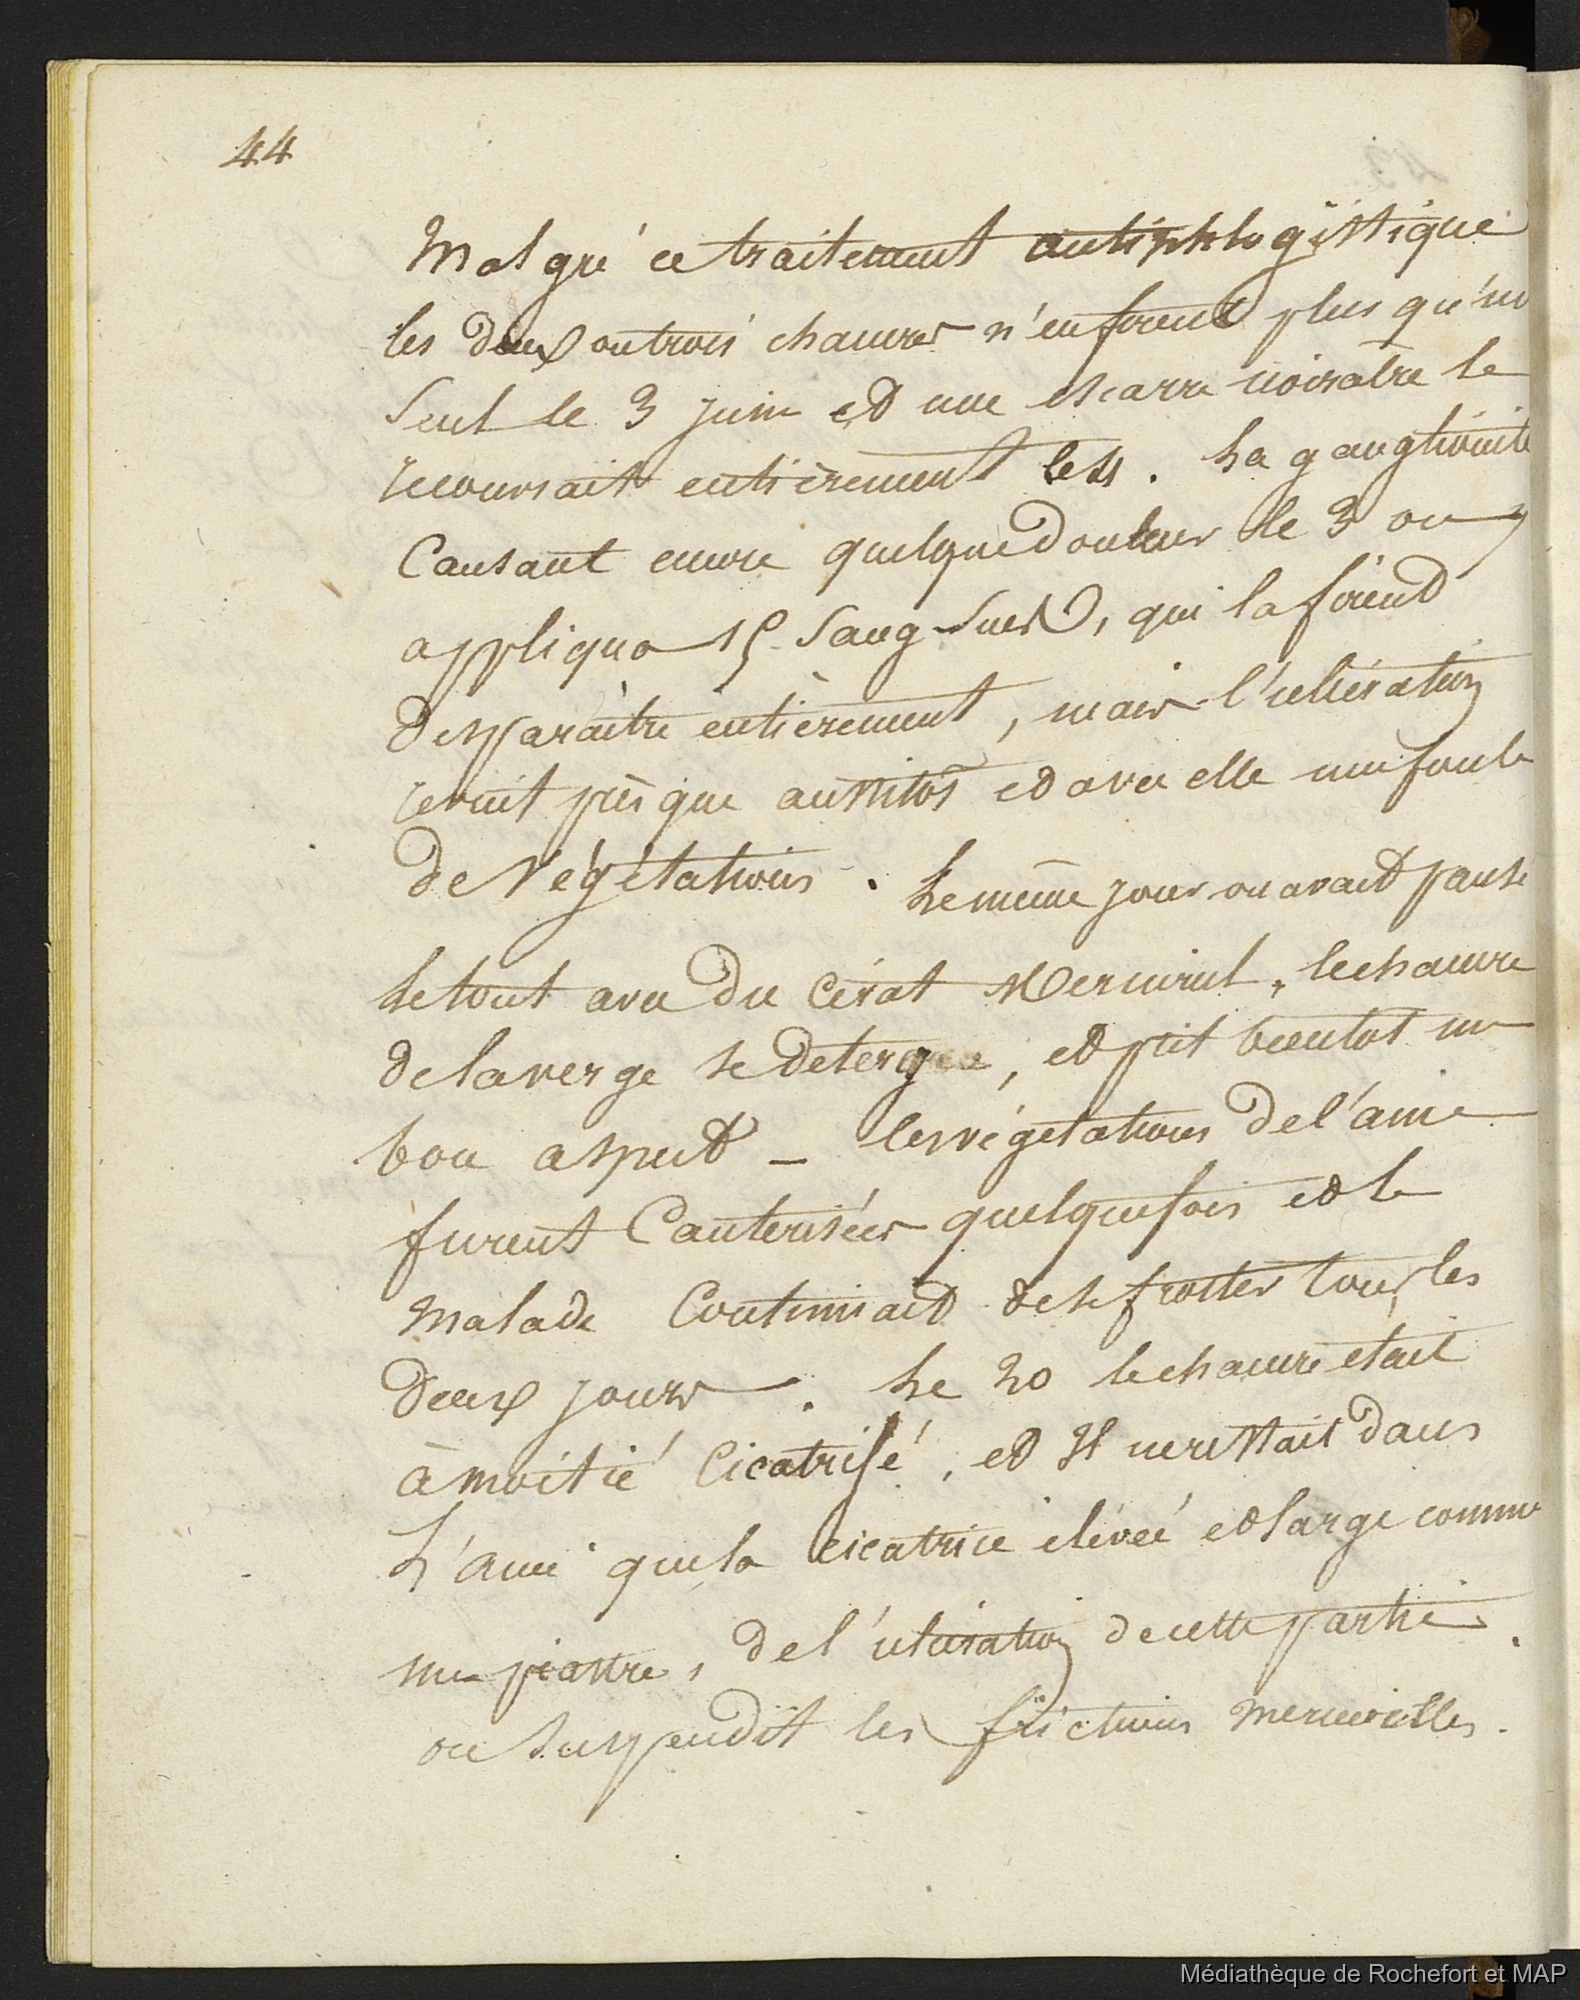 44
Malgré ce traitement antiphlogistique
les deux ou trois chancres n'en firent plus qu'un
seul le 3 juin et une escarre noiratre le
recouvrait entièrement le 4. La ganglionite
Causant encore quelque douleur le 3 on y
appliqua 15 Sang-Sues, qui la firent
disparaitre entièrement, mais l'ulcération
revint presque aussitôt et avec elle une foule
de Végétations. Le même jour on avait pansé
le tout avec du Cérat Mercuriel, le chancre
de la verge se detergea, et prit bientot un
bon aspect _ les végetations de l'aine
furent Cauterisées quelquefois et le
malade Continuait de se frotter tous les
deux jours. Le 20 le chancre etait
à moitié Cicatrisé, et Il ne restait dans
L'aine que la cicatrice élevée et large comme
une piastre, de l'ulcération de cette partie.
on suspendit les frictions mercurielles.
Médiathèque de Rochefort et MAP